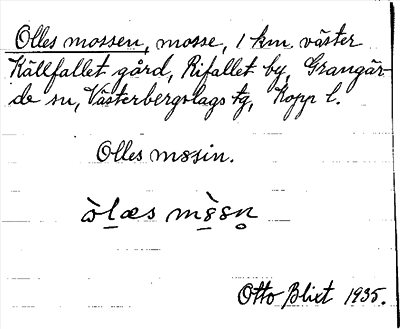 Olles mossen, mosse, 1 km. väster
Källfallet gård, Rifallet by, Grangär-
de sn, Västerbergslags tg, Kopp l.
Olles m8sin.
òl̲æs m8̲̀sn̥
Otto Blixt 1935.